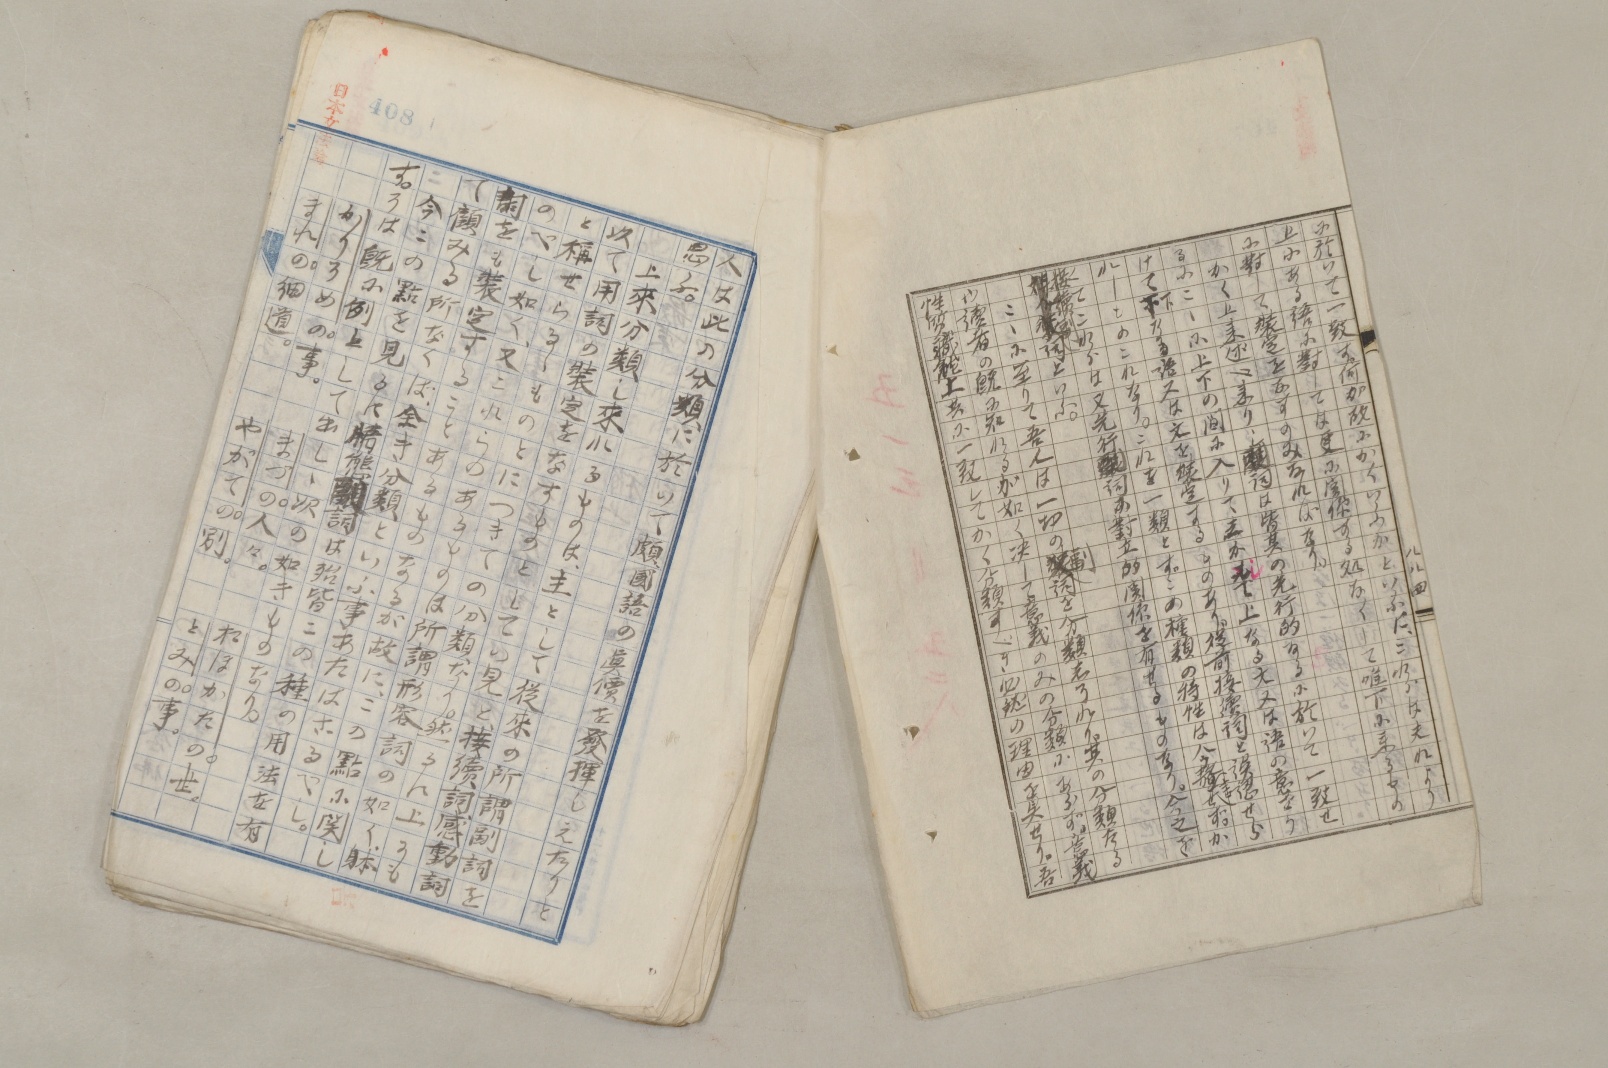 に於いて一致す。何が故にかくいふかといふに、これらは夫れより
上にある語に對しては更に關係する処なくして唯下に來るもの
に對して裝定をなすのみなればなり。
かく上來述べ來りし副詞は皆其の先行的なるに於いて一致せ
るにこゝに上下の間に入りて上なる文又は語の意をう
けて下なる語又は文を裝定するものあり。從前接續詞と誤認せら
れしものこれなり。これを一類とす。この種類の特性は
してこれらは又先行副詞に對立的關係を有せるものなり。今之を
接續副詞といふ。
こゝに至りて吾人は一切の副詞を分類し了れり。其の分類たる
や讀者の既に知れるが如く決して意義のみの分類にあらず。意義
性質職能上共に一致してかく分類すべき必然の理由を具せり。吾
人は此の分類に於いて頗國語の眞價を發揮しえたりと
思ふ。
上來分類し來れるものは、主として從來の所謂副詞を
以て用詞の裝定をなすものとしての見と接續詞感動詞
と稱せらるゝものとにつきての分類なり。然るに上にも
のべし如く、又これらのあるものは所謂形容詞の如く、体
詞をも裝定することあるものなるが故に、この點に関し
て顧みる所なくば全き分類といふ事あたはざるべし。
今この點を見るに情態副詞は殆皆この種の用法を有
するは既に例上して出しゝ次の如きものなり。
かりそめの。事。 まづ。の人々。 おほかたの。世。
まれ。の細道。 やがての。別。 とみ。の事。
408